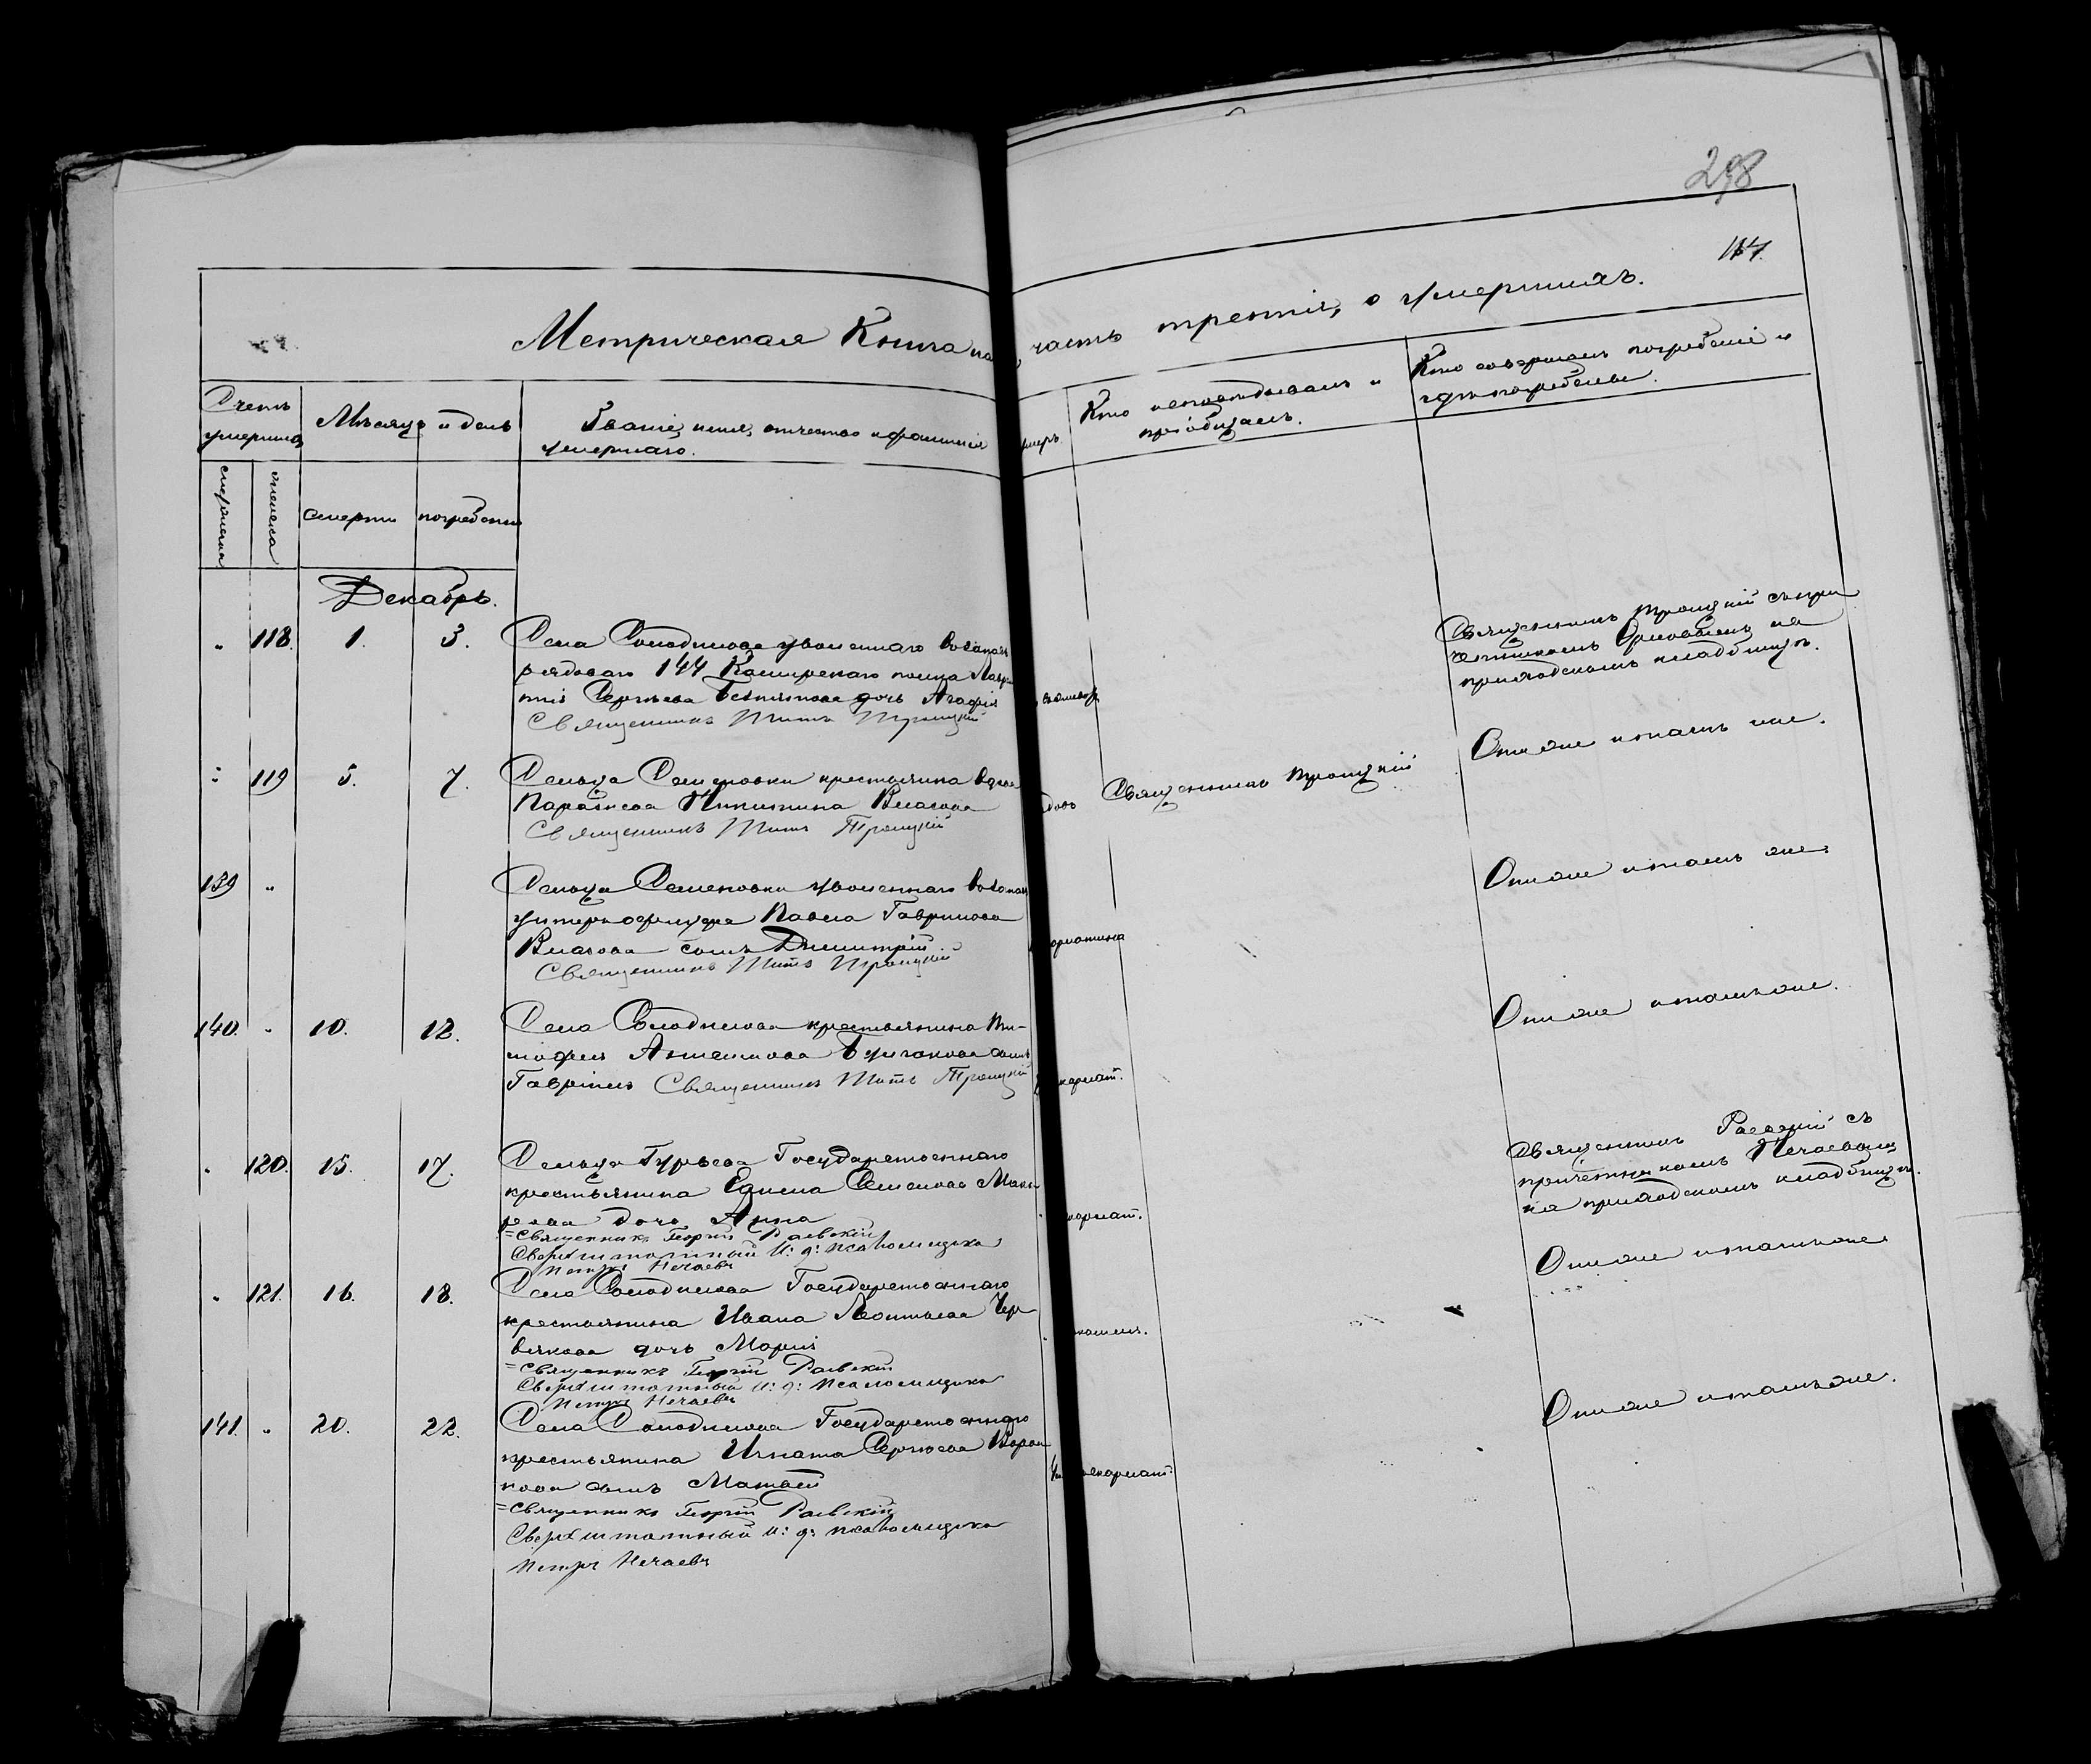 298
117.
Метрическая Книга на
часть третія, о умершихъ.
Счетъ умершихъ
Мѣсяцъ и день
Званіе, имя, отчество и фамилія
умершаго.
Кто исповѣдывалъ и
пріобщалъ.
Кто совершалъ погребеніе и
гдѣ погребены.
мужеска
женска
смерти
погребенія
Декабрь.
" 118. 1. 3. Села Солодилова уволеннаго
рядоваго 144 Каширскаго полка
Сергѣева дочь Агафія
Священникъ Титъ Троицкій
Священникъ Троицкій съ при
четникомъ на
приходскомъ кладбищѣ.
" 119 5. 7. Сельца Семеновки крестьянина вдова
Параскева Никитина Власова
Священникъ Титъ Троицкій
Священникъ Троицкій
Они же и тамъ же.
139 " Сельца Семеновки уволеннаго
унтеръ офицера Павла Гаврилова
Власова сынъ Димитрій
Священникъ Титъ Троицкій
Они же и тамъ же.
140. " 10. 12. Села Солодилова крестьянина Ти-
мофея сынъ
Гавріилъ Священникъ Титъ Троицкій
Они же и тамъ же.
" 120. 15. 17. Сельца Гурьева Государственнаго
крестьянина Семенова
дочь Анна
=Священникъ Георгій Раевскій
Сверхштатный И: д: псаломщика
Петръ Нечаевъ
Священникъ Раевскій съ
причетникомъ Нечаевымъ
на приходскомъ кладбищѣ.
" 121. 16. 18. Села Солодилова Государственнаго
крестьянина Ивана Леонтьева Чер
вякова дочь Марія
=Священникъ Георгій Раевскій
Сверхштатный И: д: псаломщика
Петръ Нечаевъ
Они же и тамъ же
141. " 20. 22. Села Солодилова Государственнаго
крестьянина Игната Сергѣева
кова сынъ Матвѣй
=Священникъ Георгій Раевскій
Сверхштатный И: д: псаломщика
Петръ Нечаевъ
Они же и тамъ же.